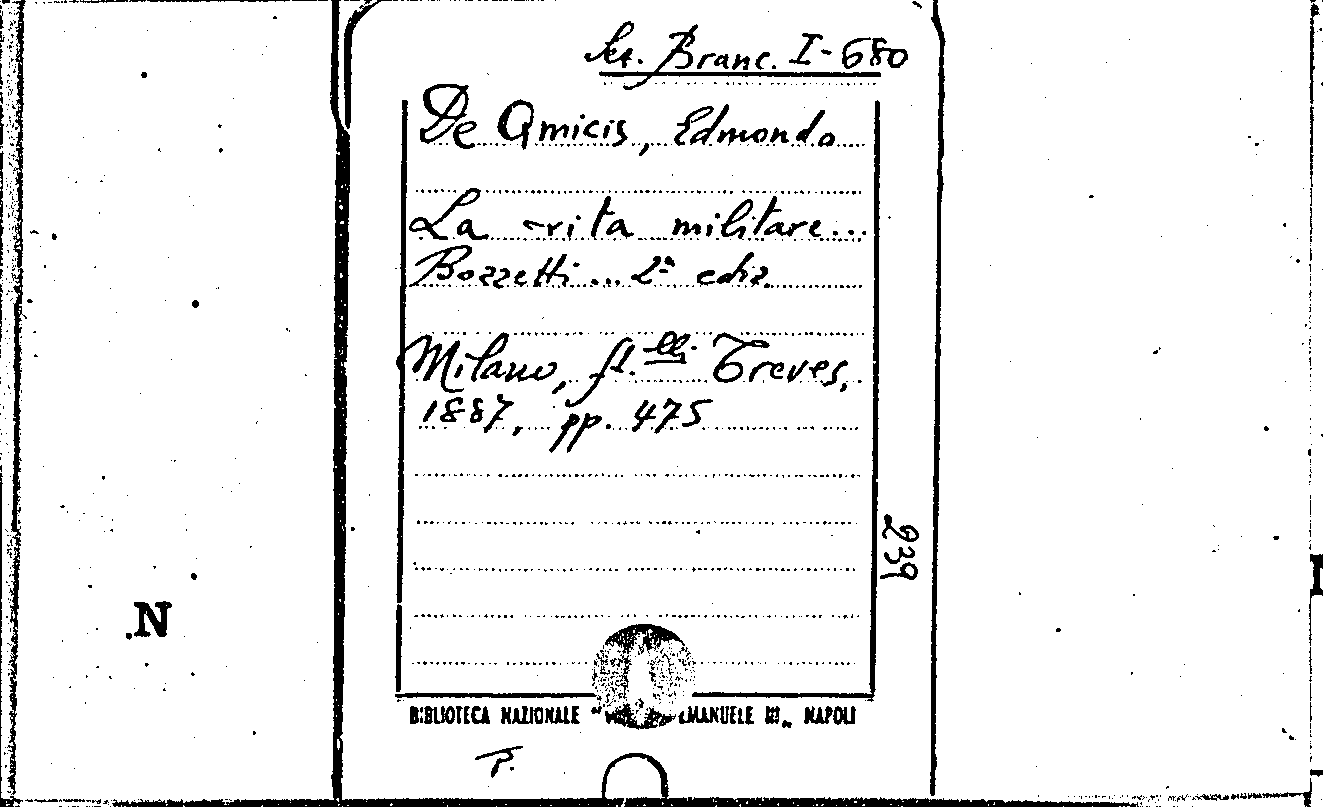 Sez. Branc. I-680
De Amicis, Edmondo
La vita militare...
Bozzetti... 2ª ediz.
Milano, f.lli Treves,
1887, pp. 475
239
.N
BIBLIOTECA NAZIONALE " EMANUELE III „ NAPOLI
P.